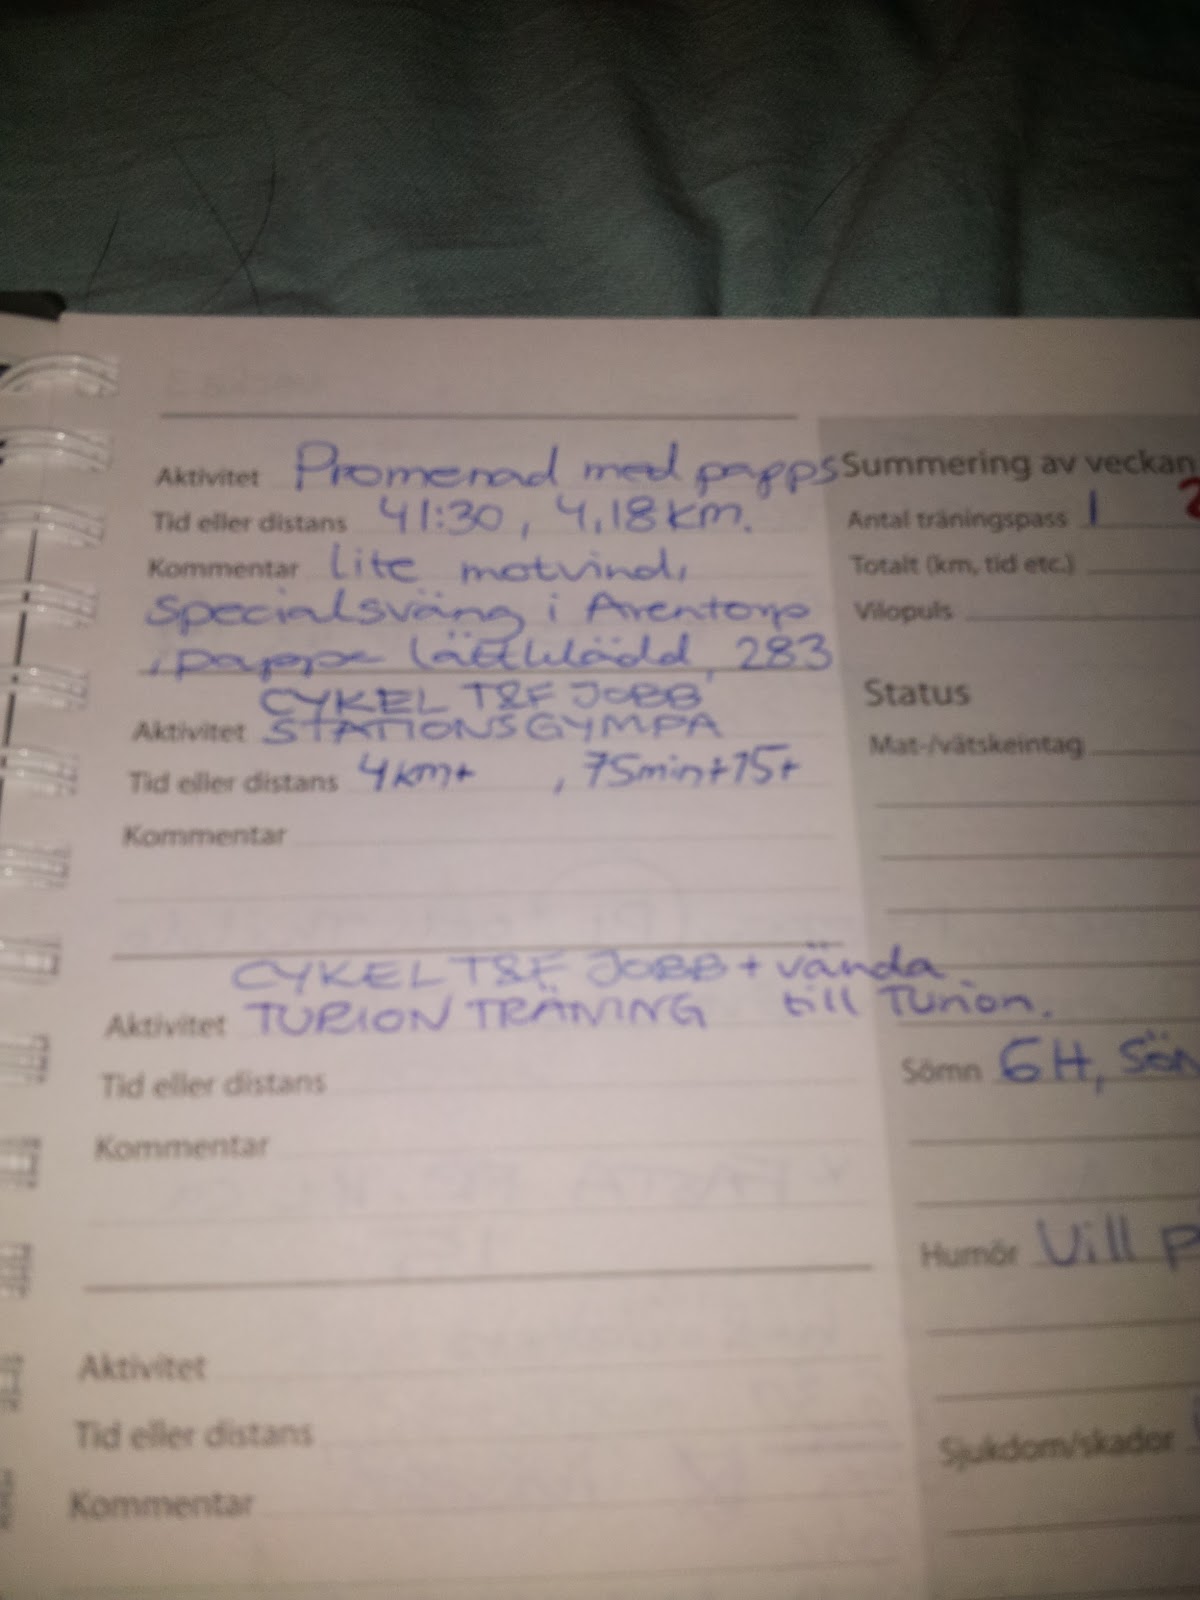 Aktivitet Promenad med papps
Tid eller distans 41:30, 4,18 km.
Kommentar Lite motvind,
Specialsväng i Arentorp
, pappe lättklädd, 283
CYKEL T&F JOBB
Aktivitet STATIONSGYMPA
Tid eller distans 4km+ , 75min+15+
Kommentar
CYKEL T&F JOBB + vända
Aktivitet TURION TRÄNING till Turion.
Tid eller distans
Kommentar
Aktivitet
Tid eller distans
Kommentar
Summering av veckan
Antal träningspass 1 2
Totalt (km, tid etc.)
Vilopuls
Status
Mat-/vätskeintag
Sömn 6H,
Humör Vill
Sjukdom/skador